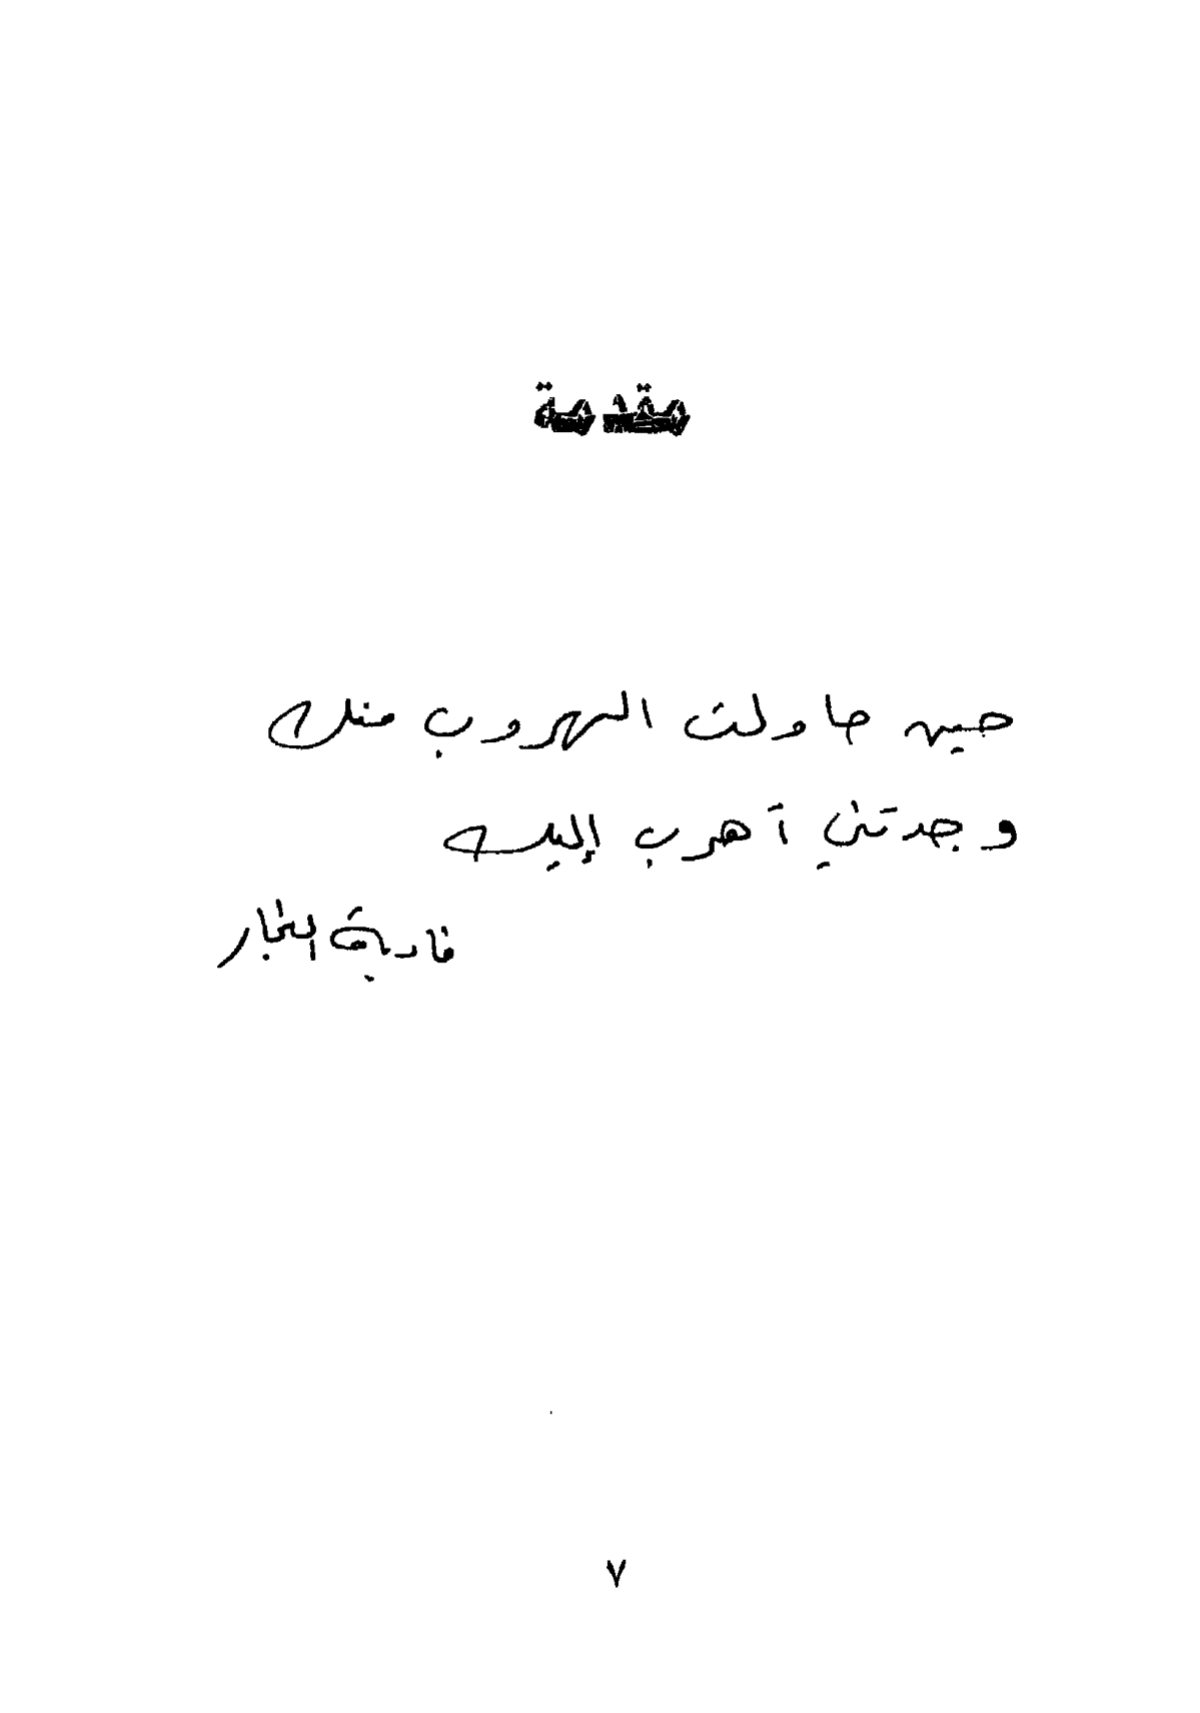 مقدمة
حين حاولت الهروب منك
وجدتني أهرب إليك
نادية النجار
٧